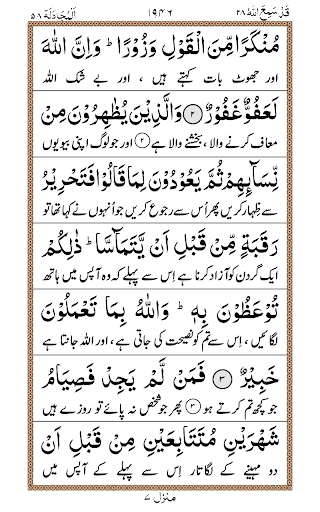 قَدْ سَمِعَ اللهُ ٢٨ ١٩٤٦ اَلْمُجَادَلَة ٥٨
مُنْكَرًا مِّنَ الْقَوْلِ وَزُوْرًا ؕ وَاِنَّ اللّٰهَ
اور جھوٹ بات کہتے ہیں ، اور بے شک اللہ
لَعَفُوٌّ غَفُوْرٌ ﴿۲﴾ وَالَّذِيْنَ يُظٰهِرُوْنَ مِنْ
معاف کرنے والا ، بخشنے والا ہے ﴿۲﴾ اور جو لوگ اپنی بیویوں
نِّسَآئِهِمْ ثُمَّ يَعُوْدُوْنَ لِمَا قَالُوْا فَتَحْرِيْرُ
سے ظہار کریں پھر اُس سے رجوع کریں جو اُنہوں نے کہا تھا تو
رَقَبَةٍ مِّنْ قَبْلِ اَنْ يَّتَمَآسَّا ؕ ذٰلِكُمْ
ایک گردن کو آزاد کرنا ہے اِس سے پہلے کہ وہ آپس میں ہاتھ
تُوْعَظُوْنَ بِهٖ ؕ وَاللّٰهُ بِمَا تَعْمَلُوْنَ
لگائیں ، اِس سے تم کو نصیحت کی جاتی ہے ، اور اللہ جانتا ہے
خَبِيْرٌ ﴿۳﴾ فَمَنْ لَّمْ يَجِدْ فَصِيَامُ
جو کچھ تم کرتے ہو ﴿۳﴾ پھر جو شخص نہ پائے تو روزے ہیں
شَهْرَيْنِ مُتَتَابِعَيْنِ مِنْ قَبْلِ اَنْ
دو مہینے کے لگاتار اِس سے پہلے کے آپس میں
منزل ٧